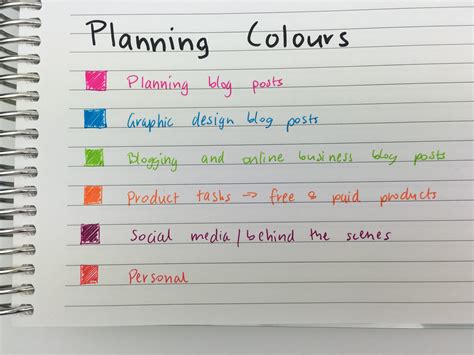 Planning Colours
Planning blog posts
Graphic design blog posts
Blogging and online business blog posts
Product tasks → free & paid products
Social media/behind the scenes
Personal